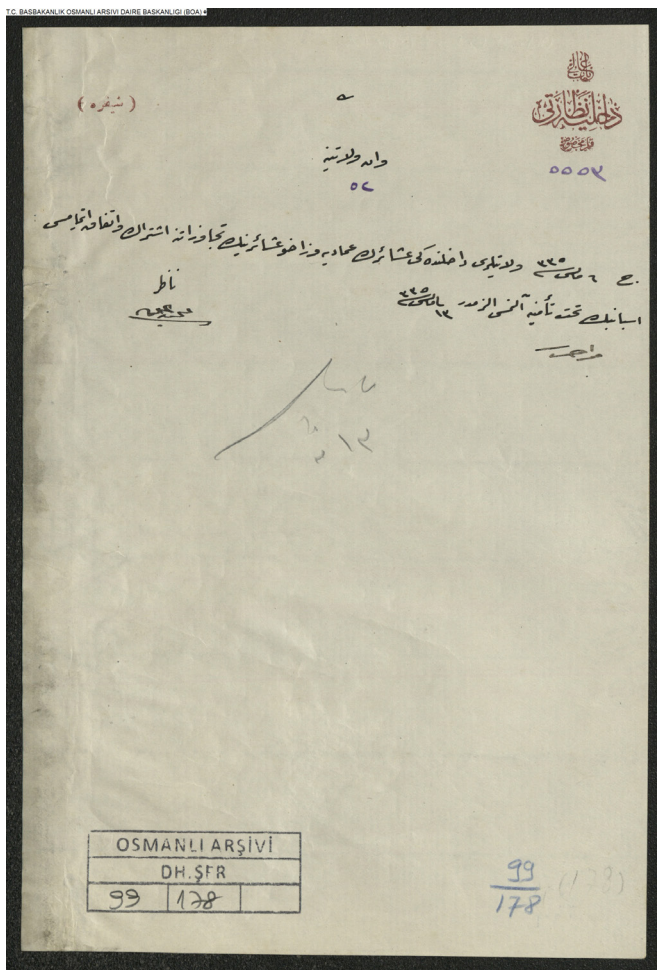 T.C. BASBAKANLIK OSMANLI ARSIVI DAIRE BASKANLIGI (BOA)
باب عالی
داخلیه نظارتی
قلم مخصوص
(شیفره)
٥٥٥٣
وان ولایتنه
٥٢
ج ٦ مایس ٣٣٥ ولایتلری داخلنده کی عشائرك عمادیه و زاخو عشائرینك تجاوزاتنه اشتراك و اتفاق ایتمامسی
اسبابنك تحت تأمینه آلنمسی الزمدر ١٣ مایس ٣٣٥
ناظر
١٣
OSMANLI ARŞİVİ
DH.ŞFR
99 178
99
178
(178)